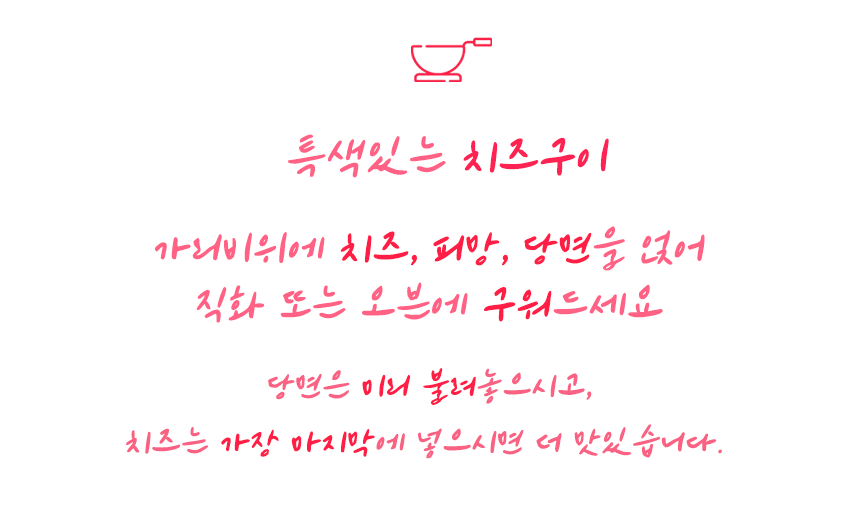 특색있는 치즈구이
가리비위에 치즈, 피망, 당면을 얹어
직화 또는 오븐에 구워드세요
당면은 미리 불려놓으시고,
치즈는 가장 마지막에 넣으시면 더 맛있습니다.